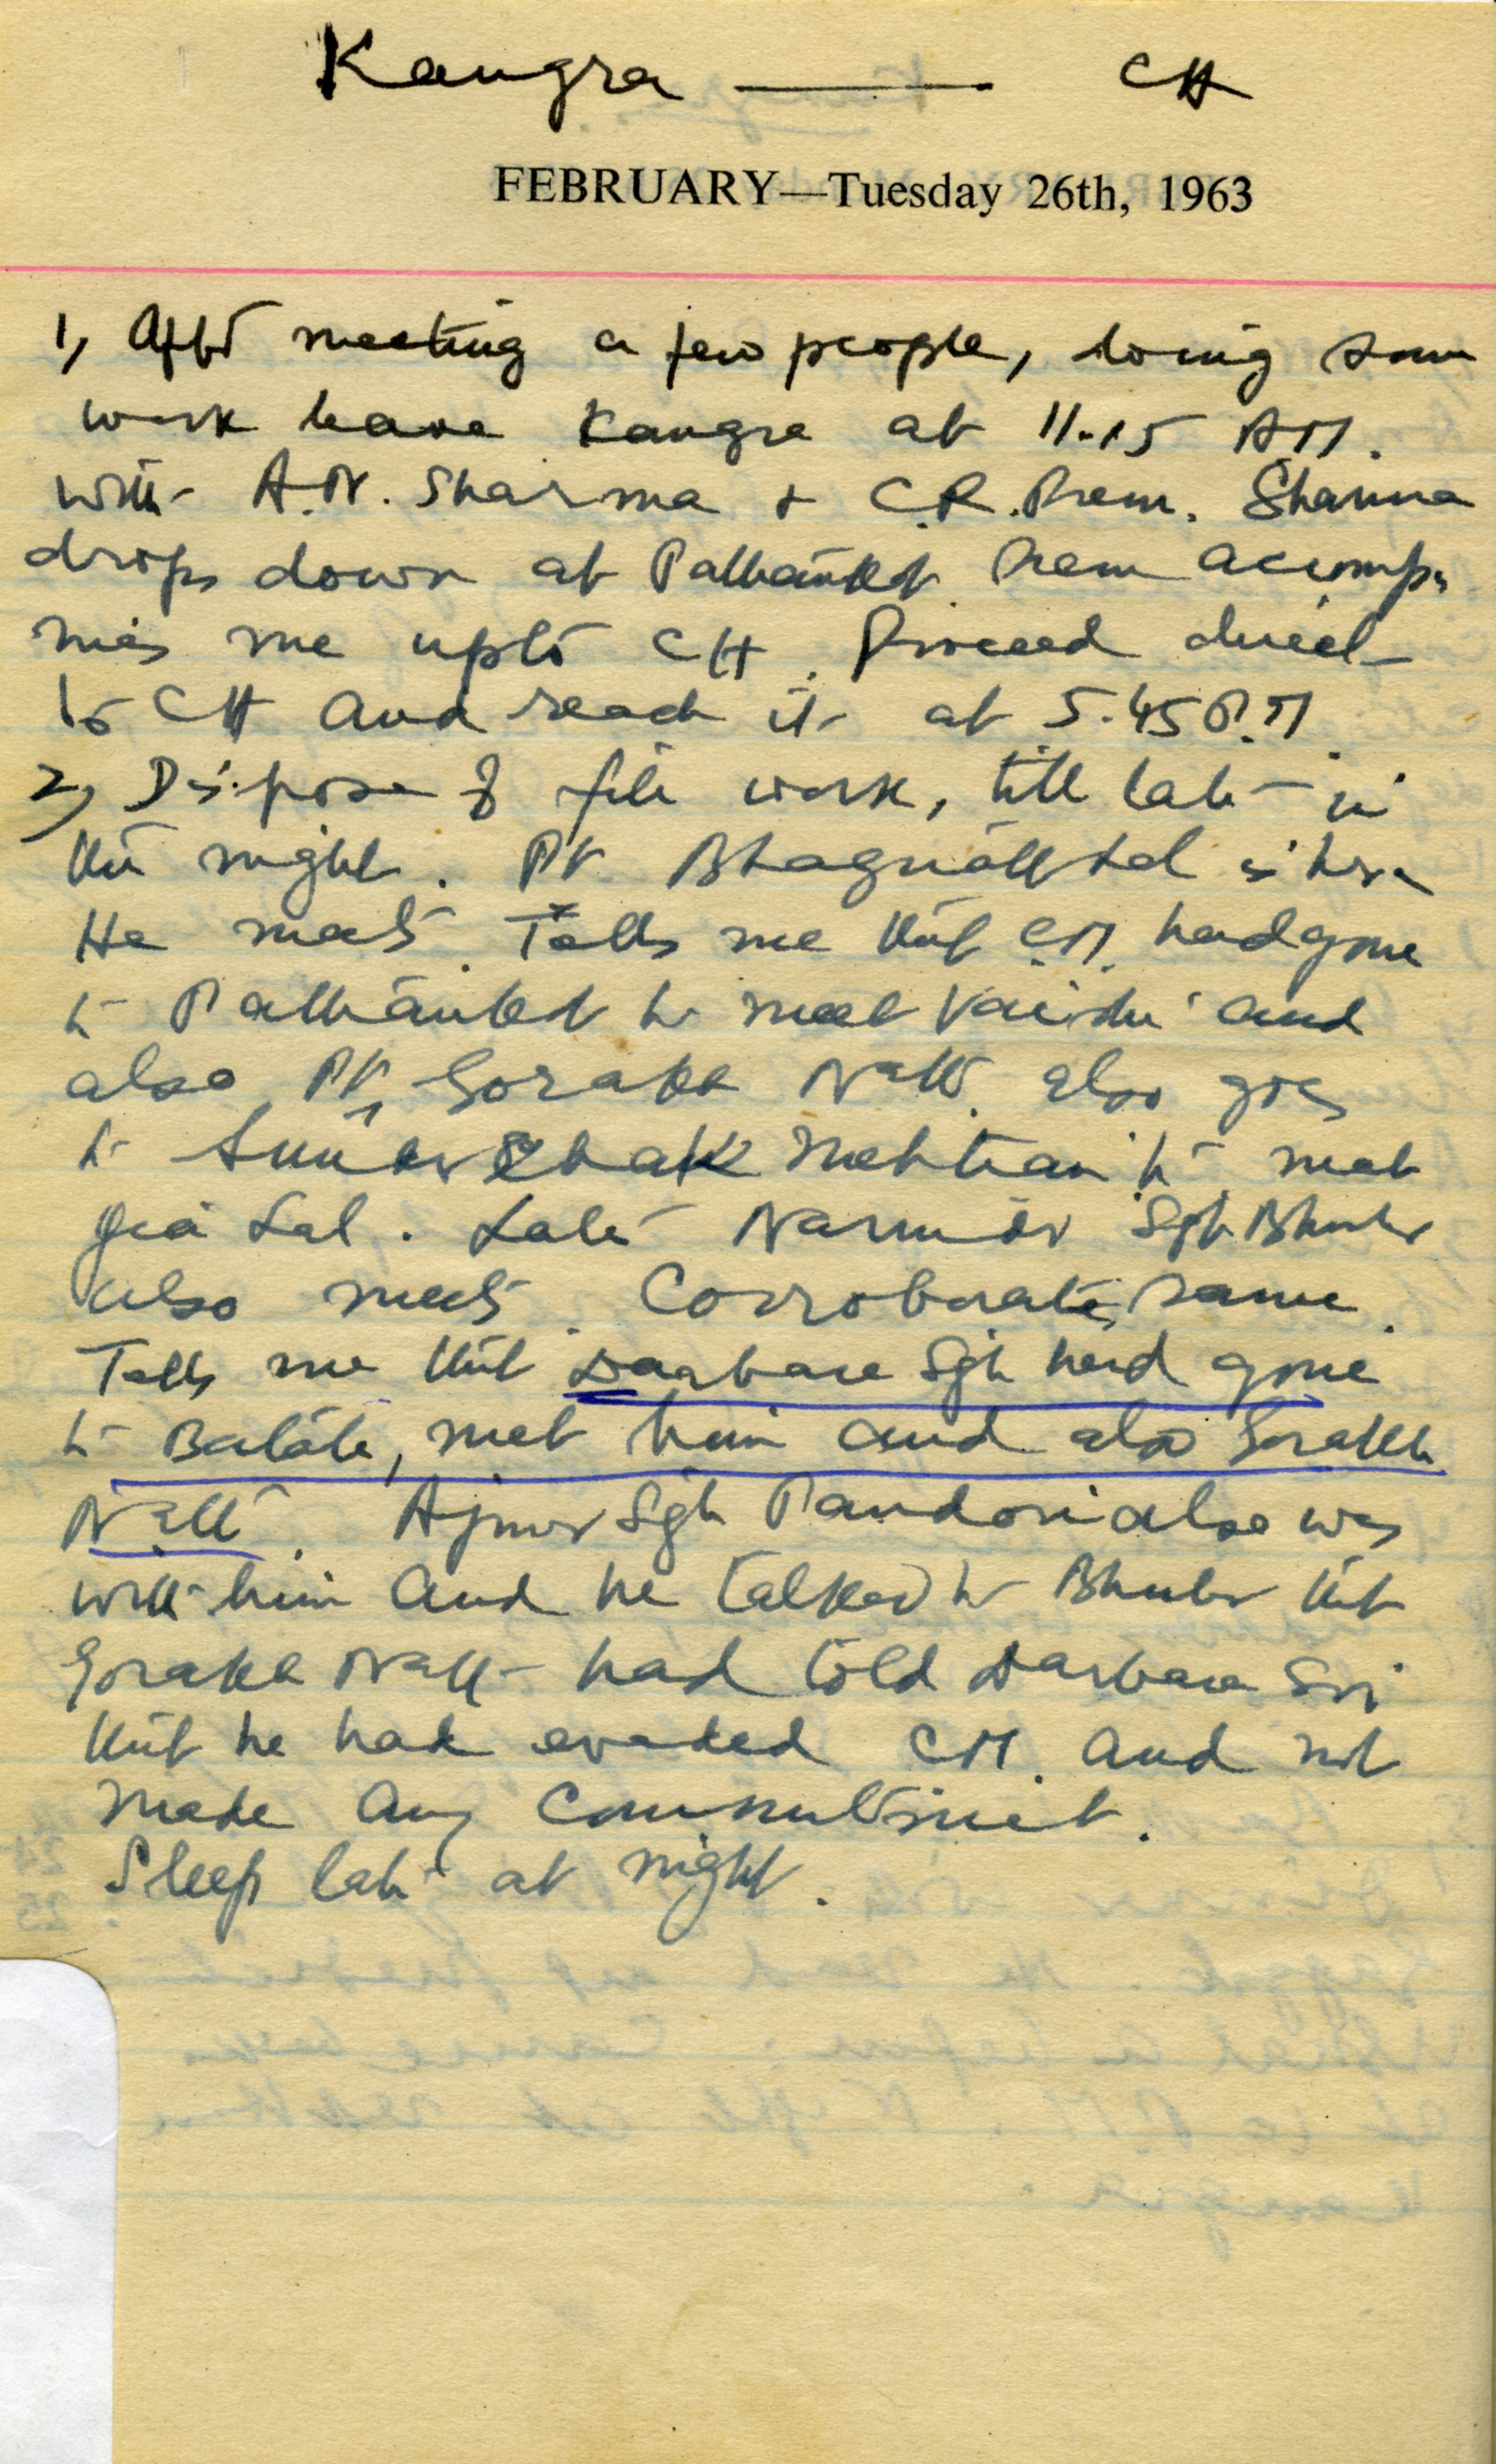 Kangra — CH
FEBRUARY—Tuesday 26th, 1963
1, After meeting a few people, doing some
work leave Kangra at 11.15 AM.
with A.N. Sharma + C.R. Prem. Sharma
drops down at Pathankot. Prem accompa
nies me upto CH. Proceed direct
to CH and reach it at 5.45 P.M.
2, Dispose of file work, till late in
the night. Pt Bhagnath Lal is here
He meets. Tells me that C.M. had gone
to Pathankot to meet Vaidu and
also Pt, Gorakh Nath. also goes
to meet
Lal. Late Narinder Sgh Bhuler
also meets. Corroborates same.
Tells me that Darbara Sgh had gone
to Batala, met him and also Gorakh
Nath. Ajmer Sgh Pandori also was
with him and he talked to Bhuler that
Gorakh Nath had told Darbara Sri
that he had evaded CM. and not
made any commitment.
Sleep late at night.